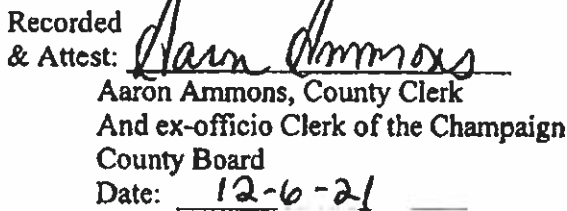 Recorded
& Attest: Aaron Ammons
Aaron Ammons, County Clerk
And ex-officio Clerk of the Champaign
County Board
Date: 12-6-21